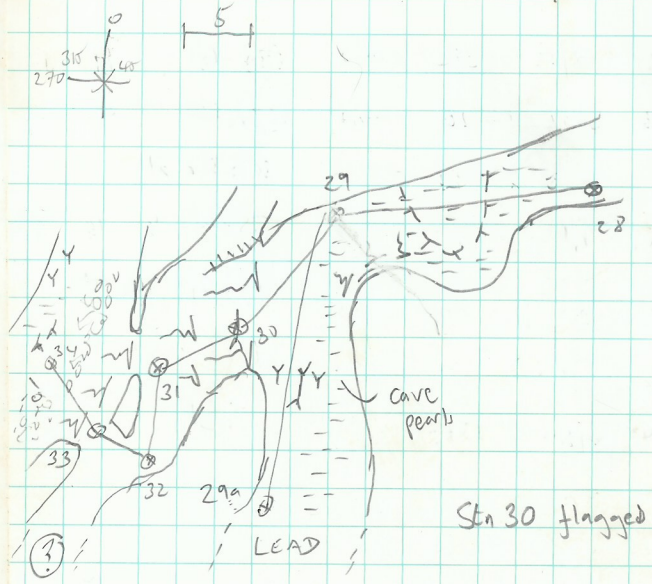 0
5
315
45
270
29
28
30
34
31
cave
pearls
33
32
29a
Stn 30 flagged
LEAD
?